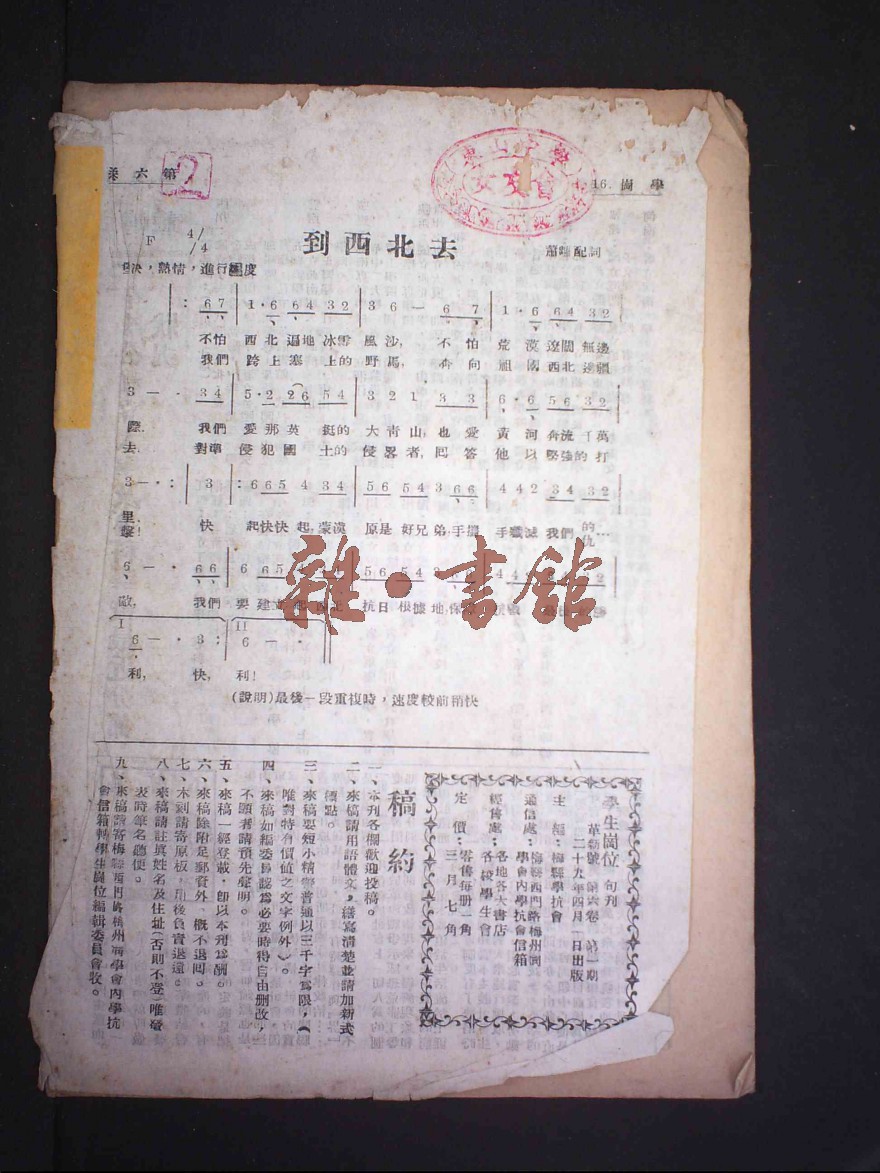 學崗 .16
第六
2
東山
會
到西北去
蕭 配詞
F 4/4
熱情，進行 度
: 6 7 | 1·6 6 4 3 2 | 3 6 — 6 7 | 1·6 6 4 3 2
不怕 西北遍地冰雪 風沙, 不怕 荒漠遼闊無邊
我們 跨上塞 上的 野馬, 奔向 祖國西北邊疆
3 — · 3 4 | 5·2 2 6 5 4 | 3 2 1 3 3 | 6·6 5 6 3 2
際. 我們 愛那英 挺的 大青山,也愛 黃河奔流 萬
去. 對準 侵犯國 土的 侵畧者,回答 他以堅強的打
3 — · : | 3 : 6 6 5 4 3 4 | 5 6 5 4 3 6 6 | 4 4 2 3 4 3 2
里. 快 起快快起,蒙漢 原是好兄弟,手攜 手殲滅我們的
擊! 仇…
6 — · 6 6 | 6 6 5
敵, 我們 要建立 抗日根據地,保
I 6 — · 3 : II 6 — ·
利, 快, 利!
(說明)最後一段重複時，速度較前稍快
學生崗位 旬刊
革新號 第六卷 第一期
二十九年四月一日出版
主編：梅縣學抗會
通信處：梅縣西門路梅州同
學會內學抗會信箱
經售處：各地各大書店
各校學生會
定價：零售每册一角
三月七角
稿約
一、本刊各欄歡迎投稿。
二、來稿請用語體文，繕寫清楚並請加新式
標點。
三、來稿要短小精警普通以三千字爲限，（
唯對特有價値之文字例外）。
四、來稿如編委員認爲必要時得自由删改，
不願者請預先聲明。
五、來稿一經登載，卽以本刊爲酬。
六、來稿除附足郵資外，概不退囘。
七、木刻請寄原板，用後負責退還。
八、來稿請註眞姓名及住址（否則不登）唯發
表時筆名聽便。
九、來稿請寄梅縣西門路梅州同學會內學抗
會信箱轉學生崗位編輯委員會收。
雜·書館